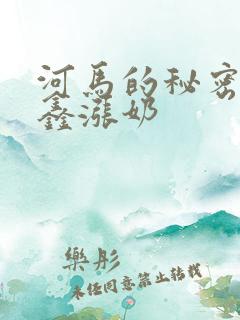 河马的秘密
鑫涨奶
乐彤
未经同意禁止转载